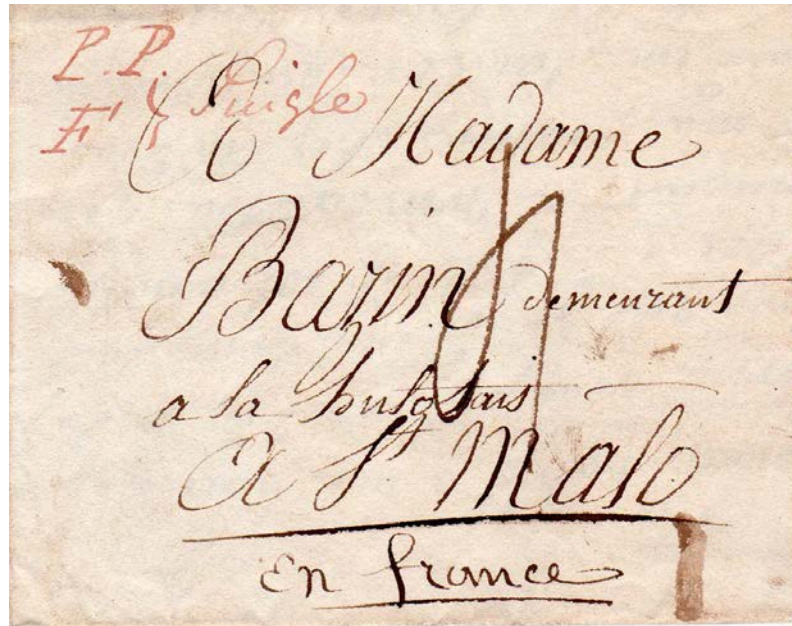 P. P.
F.
A Madame
Bazin demeurant
a la
A St Malo
En france